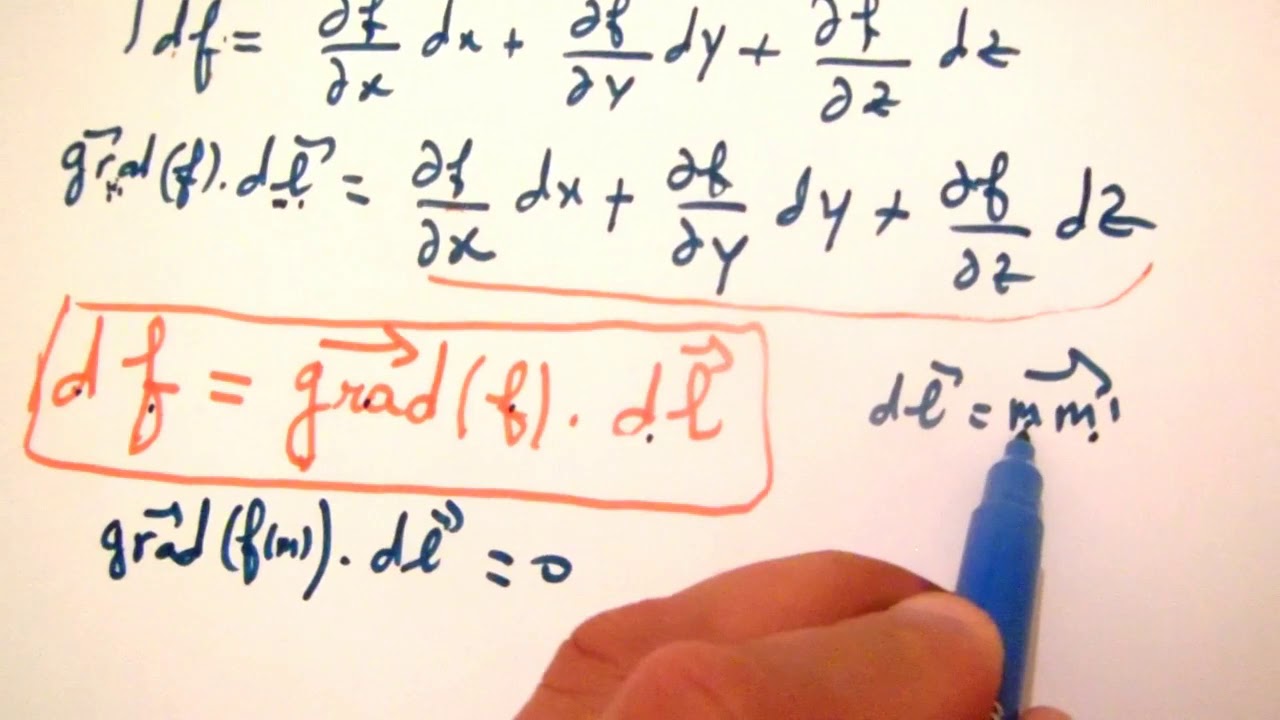 df = ∂f/∂x dx + ∂f/∂y dy + ∂f/∂z dz
grad⃗(f). dl⃗ = ∂f/∂x dx + ∂f/∂y dy + ∂f/∂z dz
df = grad⃗(f). dl⃗
dl⃗ = mm'⃗
grad⃗(f(m)). dl⃗ = 0